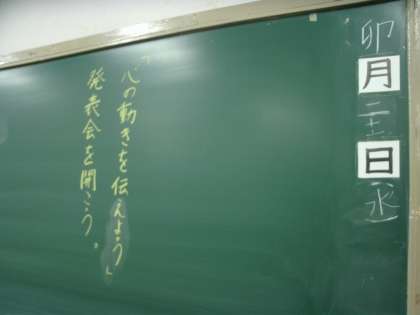 卯月二十二日(水)
「心の動きを伝えよう」
発表会を開こう。